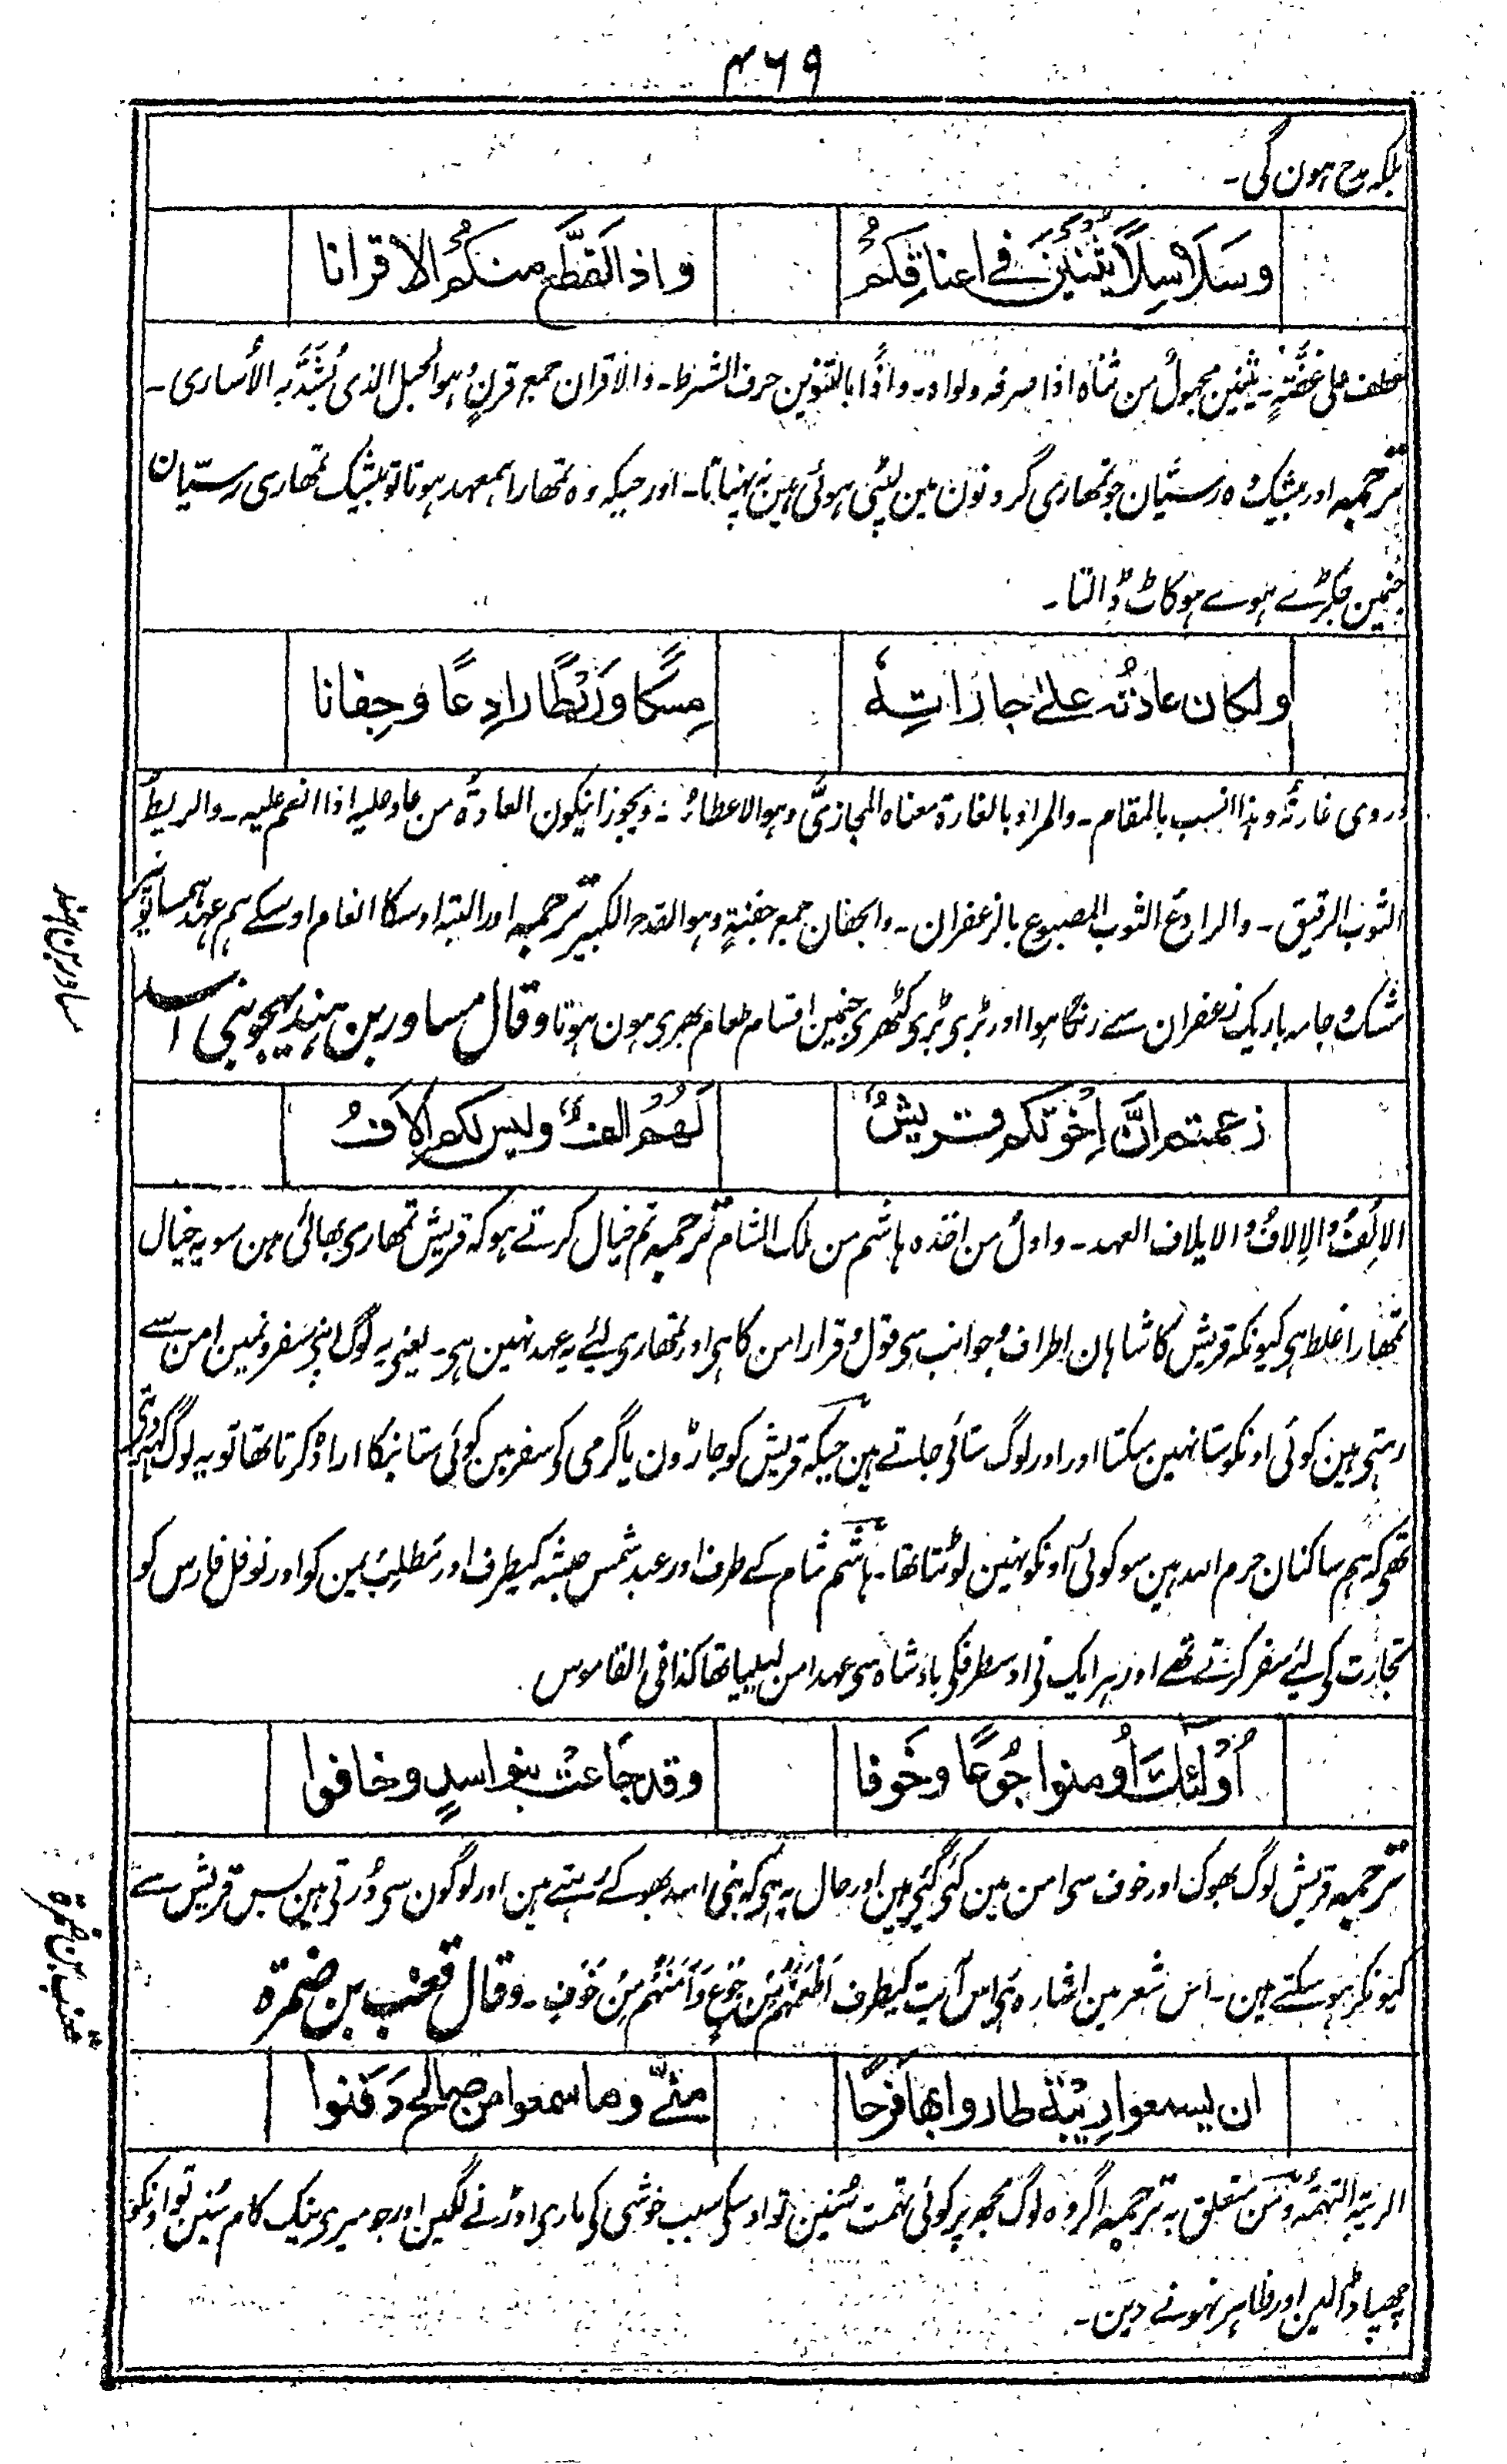 ۴۶۹
بلکہ مدح ہون گی۔
وسَلَاسِلًا يُثْنَيْنَ فے اعناقِكُمْ واذا لقَطَّع منكمُ الاقرانا
عطف علی غُصَّةٍ۔ یثنین مجہولٌ من ثناہ اذا صرفہ ولواہ۔ واذًا بالتنوین حرف الشرط۔ والاقران جمع قرنٍ ہو الحبل الذی یُشَدُّ بہ الأساری۔
ترجمہ اور بیشک وہ رسّیان جو تمھاری گردنون مین لپٹی ہوئی ہین نہ پہنپاتا۔ اور جبکہ وہ تمھارا ہمعہد ہوتا تو بیشک تمھاری رسّیان
جنمین جکڑے ہوے ہو کاٹ ڈالتا۔
ولكان عادتُه علےٰ جاراتِهٖ مِسكًا ورَيْطًا رادِعًا وجِفانا
وروی غارتُہ وہذا انسب بالمقام۔ والمراد بالغارة معناہ المجازیّ وہو الاعطاء۔ ویجوز انیکون العادةُ من عاد علیہ اذا انعم علیہ۔ والریطُ
الثوب الرقیق۔ والرادعُ الثوب المصبوع بالزعفران۔ والجفان جمع جفنةٍ وہو القدح الکبیر ترجمہ اور البتہ اوسکا انعام اوسکے ہم عہد ہمسائیونپر
مشک و جامہ باریک زعفران سے رنگا ہوا اور بڑی بڑی کٹھری جنمین اقسام طعام بھری ہون ہوتا وقال مساور بن ہند یہجو بنی اسد
مساور بن ہند
زعمتم انَّ اِخْوتَكم قريشٌ لَهُمْ الفٌ وليس لكم اِلافُ
الالفُ والالافُ والایلاف العہد۔ واولُ من اخذہ ہاشم من ملک الشام ترجمہ تم خیال کرتے ہو کہ قریش تمھاری بھائی ہین سو یہ خیال
تمھارا غلط ہی کیونکہ قریش کا شاہان اطراف و جوانب سی قول و قرار امن کا ہی اور تمھاری لیئے یہ عہد نہین ہی۔ یعنی یہ لوگ اپنی سفرونمین امن سے
رہتی ہین کوئی اونکو ستا نہین سکتا اور اور لوگ ستائی جاتے ہین جبکہ قریش کو جاڑون یا گرمی کی سفر مین کوئی ستانیکا ارادہ کرتا تھا تو یہ لوگ کہدیتی
تھی کہ ہم ساکنان حرم اللہ ہین سو کوئی اونکو نہین لوٹتا تھا۔ ہاشم شام کے طرف اور عبد شمس حبشہ کیطرف اور مطلب یمن کو اور نوفل فارس کو
تجارت کی لیئے سفر کرتے تھے اور ہر ایک نی اوسطرفکی بادشاہ سی عہد امن لیلیا تھا کذا فی القاموس
اُولٰئكَ اُومنوا جُوعًا وخَوفا وقد جَاعتْ بنو اسدٍ وخافوا
ترجمہ قریش لوگ بھوک اور خوف سی امن مین کئی گئی ہین اور حال یہ ہی کہ بنی اسد بھوکے رہتے ہین اور لوگون سی ڈرتی ہین پس قریش سے
کیونکر ہو سکتے ہین۔ اس شعر مین اشارہ ہی اس آیت کیطرف اَطْعَمَهُمْ مِنْ جُوْعٍ وَآمَنَهُمْ مِنْ خَوْفٍ۔ وقال قعنب بن ضمرة
قعنب بن ضمرة
ان يسمعوا رِيبةً طاروا بها فَرَحًا منّے وما سمعوا من صالحٍ دَفَنوا
الریبة التہمة و من متعلق بہ ترجمہ اگر وہ لوگ مجھ پر کوئی تہمت سنین تو اوسکی سبب خوشی کی ماری اوڑنے لگین اور جو میری نیک کام سنین تو اونکو
چھپا ڈالین اور ظاہر نہونے دین۔